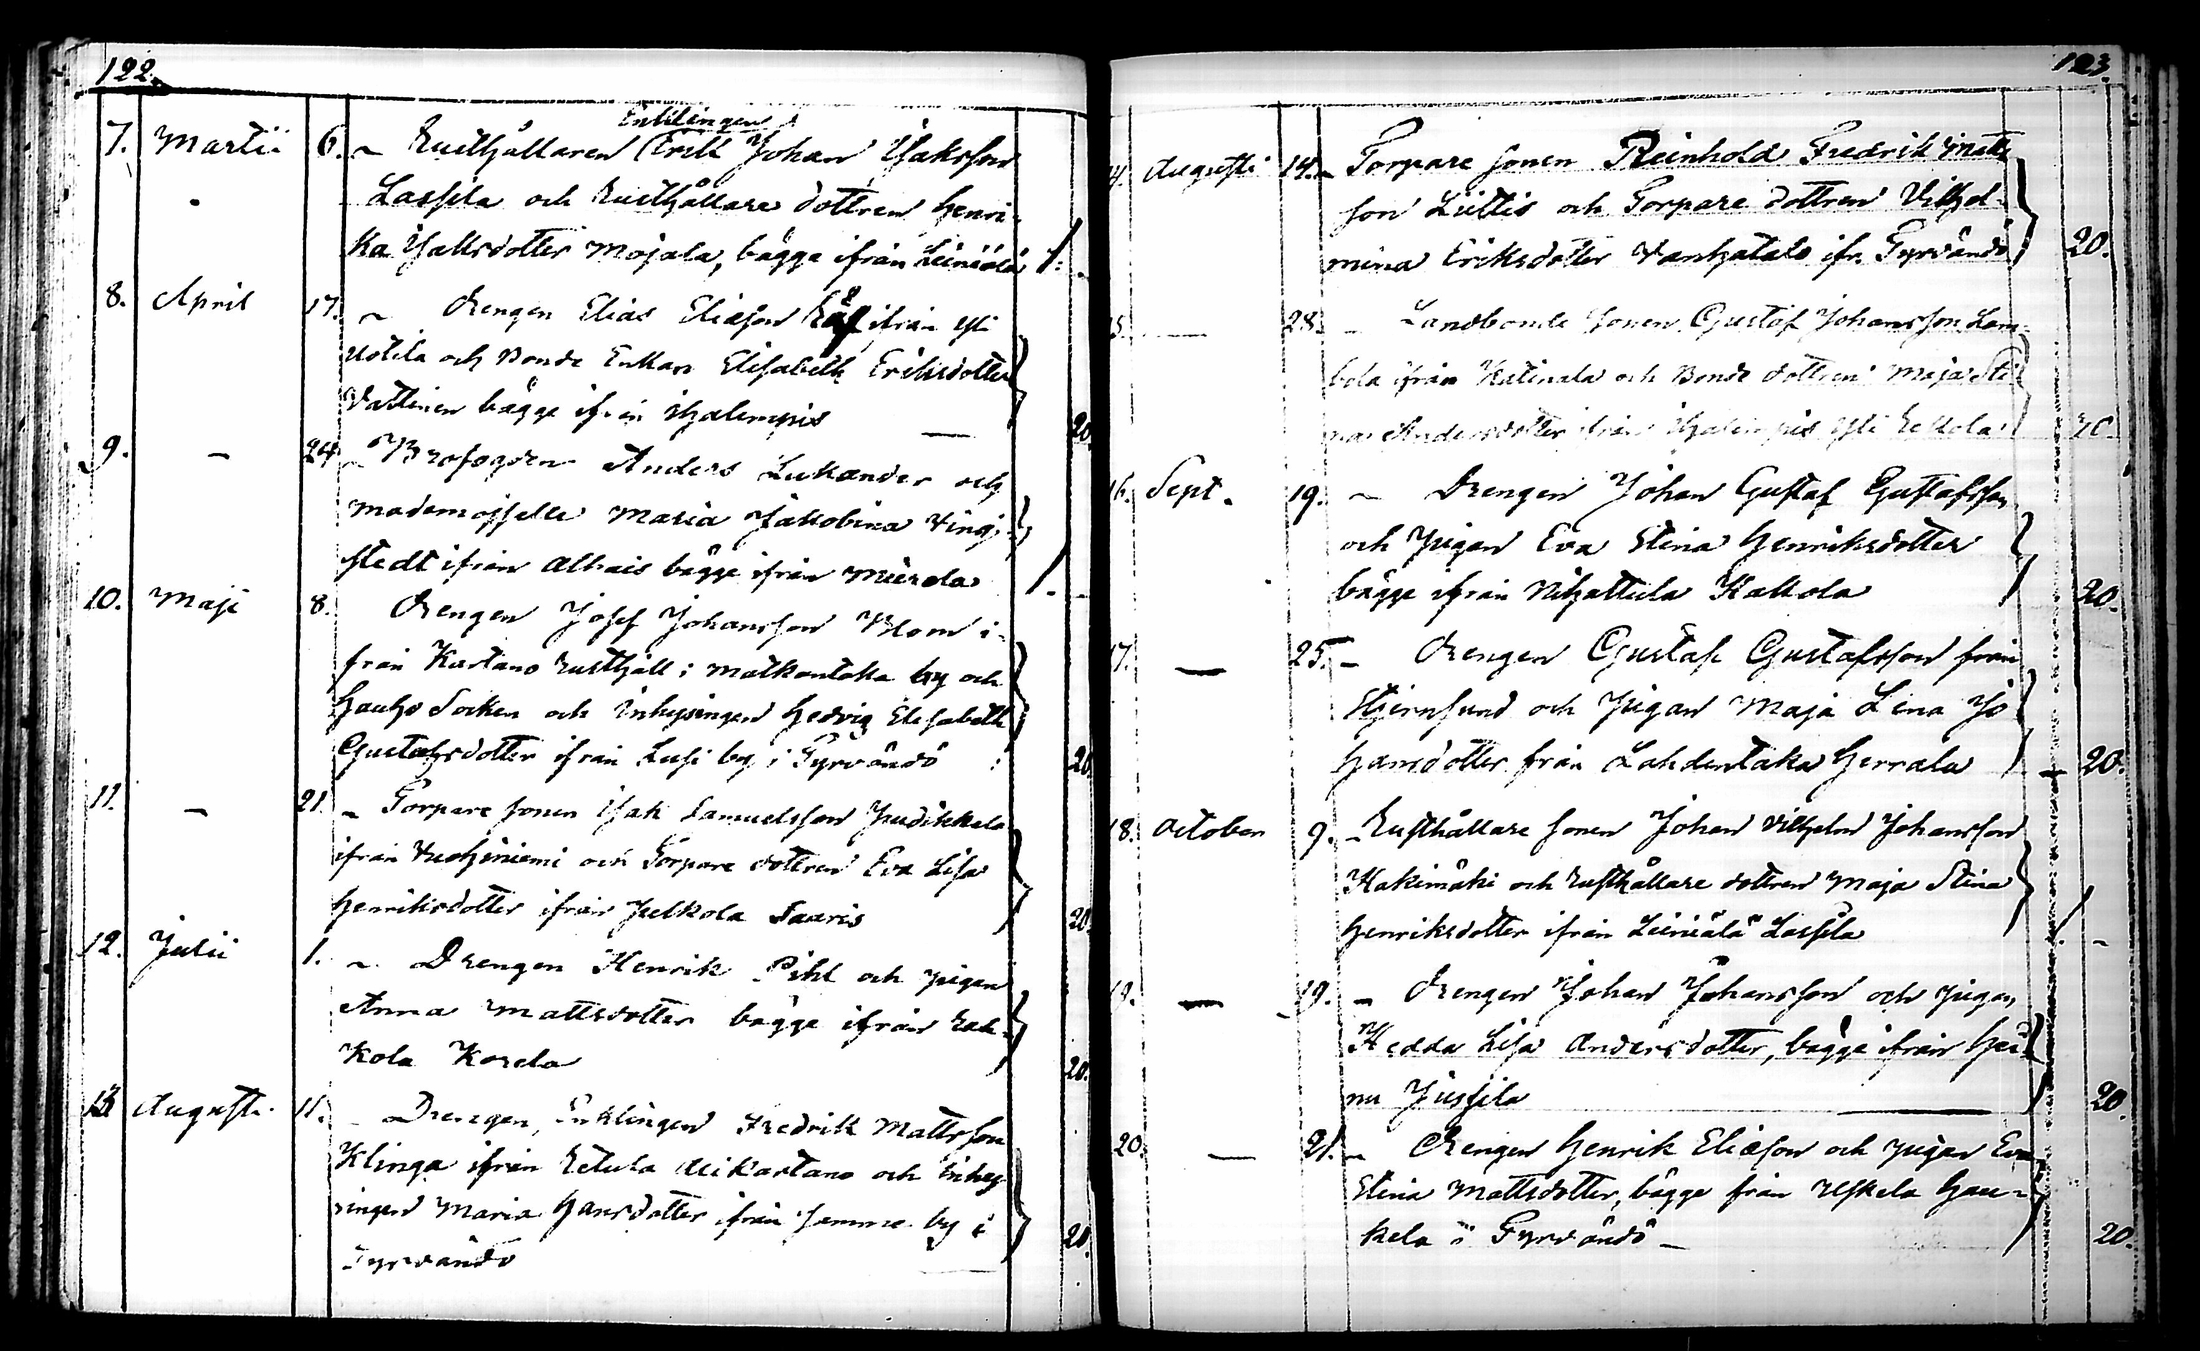 122.
Enklingen
7. Martii 6. Rusthållaren Erik Johan Isaksson
Lassila och Rusthållare dottren Henri-
ka Isaksdotter Mojala, bägge ifrån Leiniälä 1. -
8. April 17. Drengen Elias Eliæson ifrån Yli
Uotila och Bonde Enkan Elisabeth Eriksdotter
Vastinen bägge ifrån Ihalempis 20.
9. - 24. Brofogden Anders Lukander och
Mademoiselle Maria Jakobina Ving-
stedt ifrån Alhais bägge ifrån Mierola 1. -
10. Maji 8. Drengen Josef Johansson Blom i-
från Kartano Rusthåll i Matkantaka by och
Hauho Socken och Inhysingen Hedvig Elisabeth
Gustafsdotter ifrån Lusi by i Tyrvändö 20.
11. - 21. Torpare Sonen Isak Samuelsson Judikkala
ifrån Vuohiniemi och Torpare dottren Eva Lisa
Henriksdotter ifrån Pelkola Saaris 20.
12. Julii 1. Drengen Henrik Pihl och Pigan
Anna Mattsdotter bägge ifrån Rah-
kola Korela 20.
13 Augusti. 11. Drengen, Enklingen Fredrik Mattsson
Klinga ifrån Retula Alikartano och Inhey-
singen Maria Hansdotter ifrån samma by i
Tyrvändö 20.
123.
14. Augusti 14. Torpare Sonen Reinhold Fredrik Matts
son Liittis och Torpare dottren Vilhel-
mina Eriksdotter Vanhatalo ifr. Tyrvändö 20.
15. - 28. Landbonde Sonen Gustaf Johansson Lam-
bola ifrån Katinala och Bonde dottren Maja Sti
na Andersdotter ifrån Ihalempis Yli Rekola 20.
16. Sept. 19. Drengen Johan Gustaf Gustafsson
och Pigan Eva Stina Henriksdotter
bägge ifrån Nihattula Kakkola 20.
17. - 25. Drengen Gustaf Gustafsson från
Stjernsund och Pigan Maja Lena Jo
hansdotter från Lahdentaka Herrala 20.
18. October 9. Rusthållare Sonen Johan Vilhelm Johansson
Kakimäki och Rusthållare dottren Maja Stina
Henriksdotter ifrån Leiniälä Lassila 1. -
19. - 19. Drengen Johan Johansson och Pigan
Hedda Lisa Andersdotter, bägge ifrån Hei-
nu Jussila 20.
20. - 21. Drengen Henrik Eliæson och Pigan Eva
Stina Mattsdotter, bägge från Uskela Hau-
kela i Tyrvändö 20.